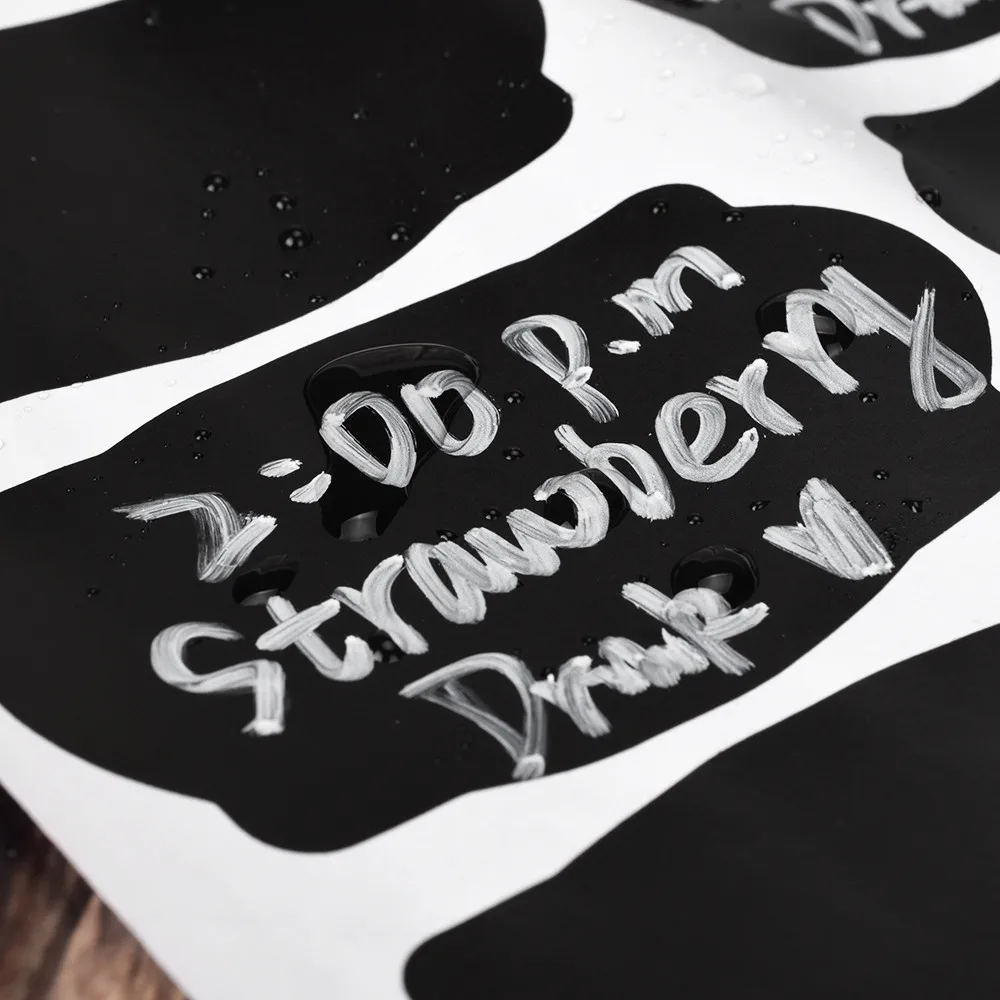 Dr
2:00 p.m
Strawberry
Drink ♥